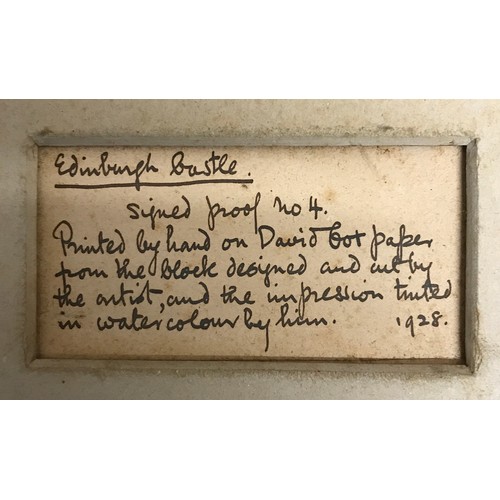 Edinburgh Castle.
signed proof no 4.
Printed by hand on David Cox paper
from the block designed and cut by
the artist, and the impression tinted
in watercolour by him. 1928.